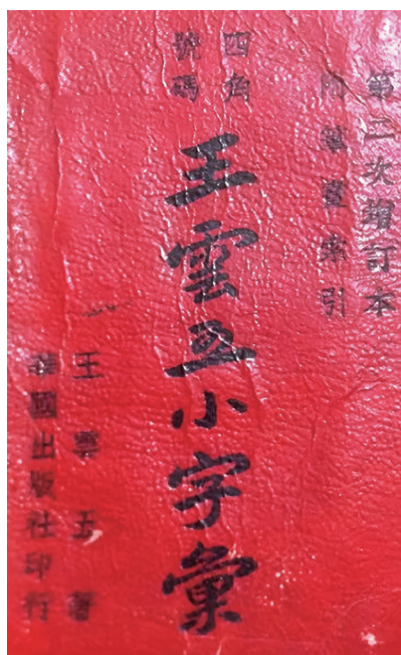 第二次增訂本
附筆畫索引
四角
號碼
王雲五小字彙
王雲五著
華國出版社印行